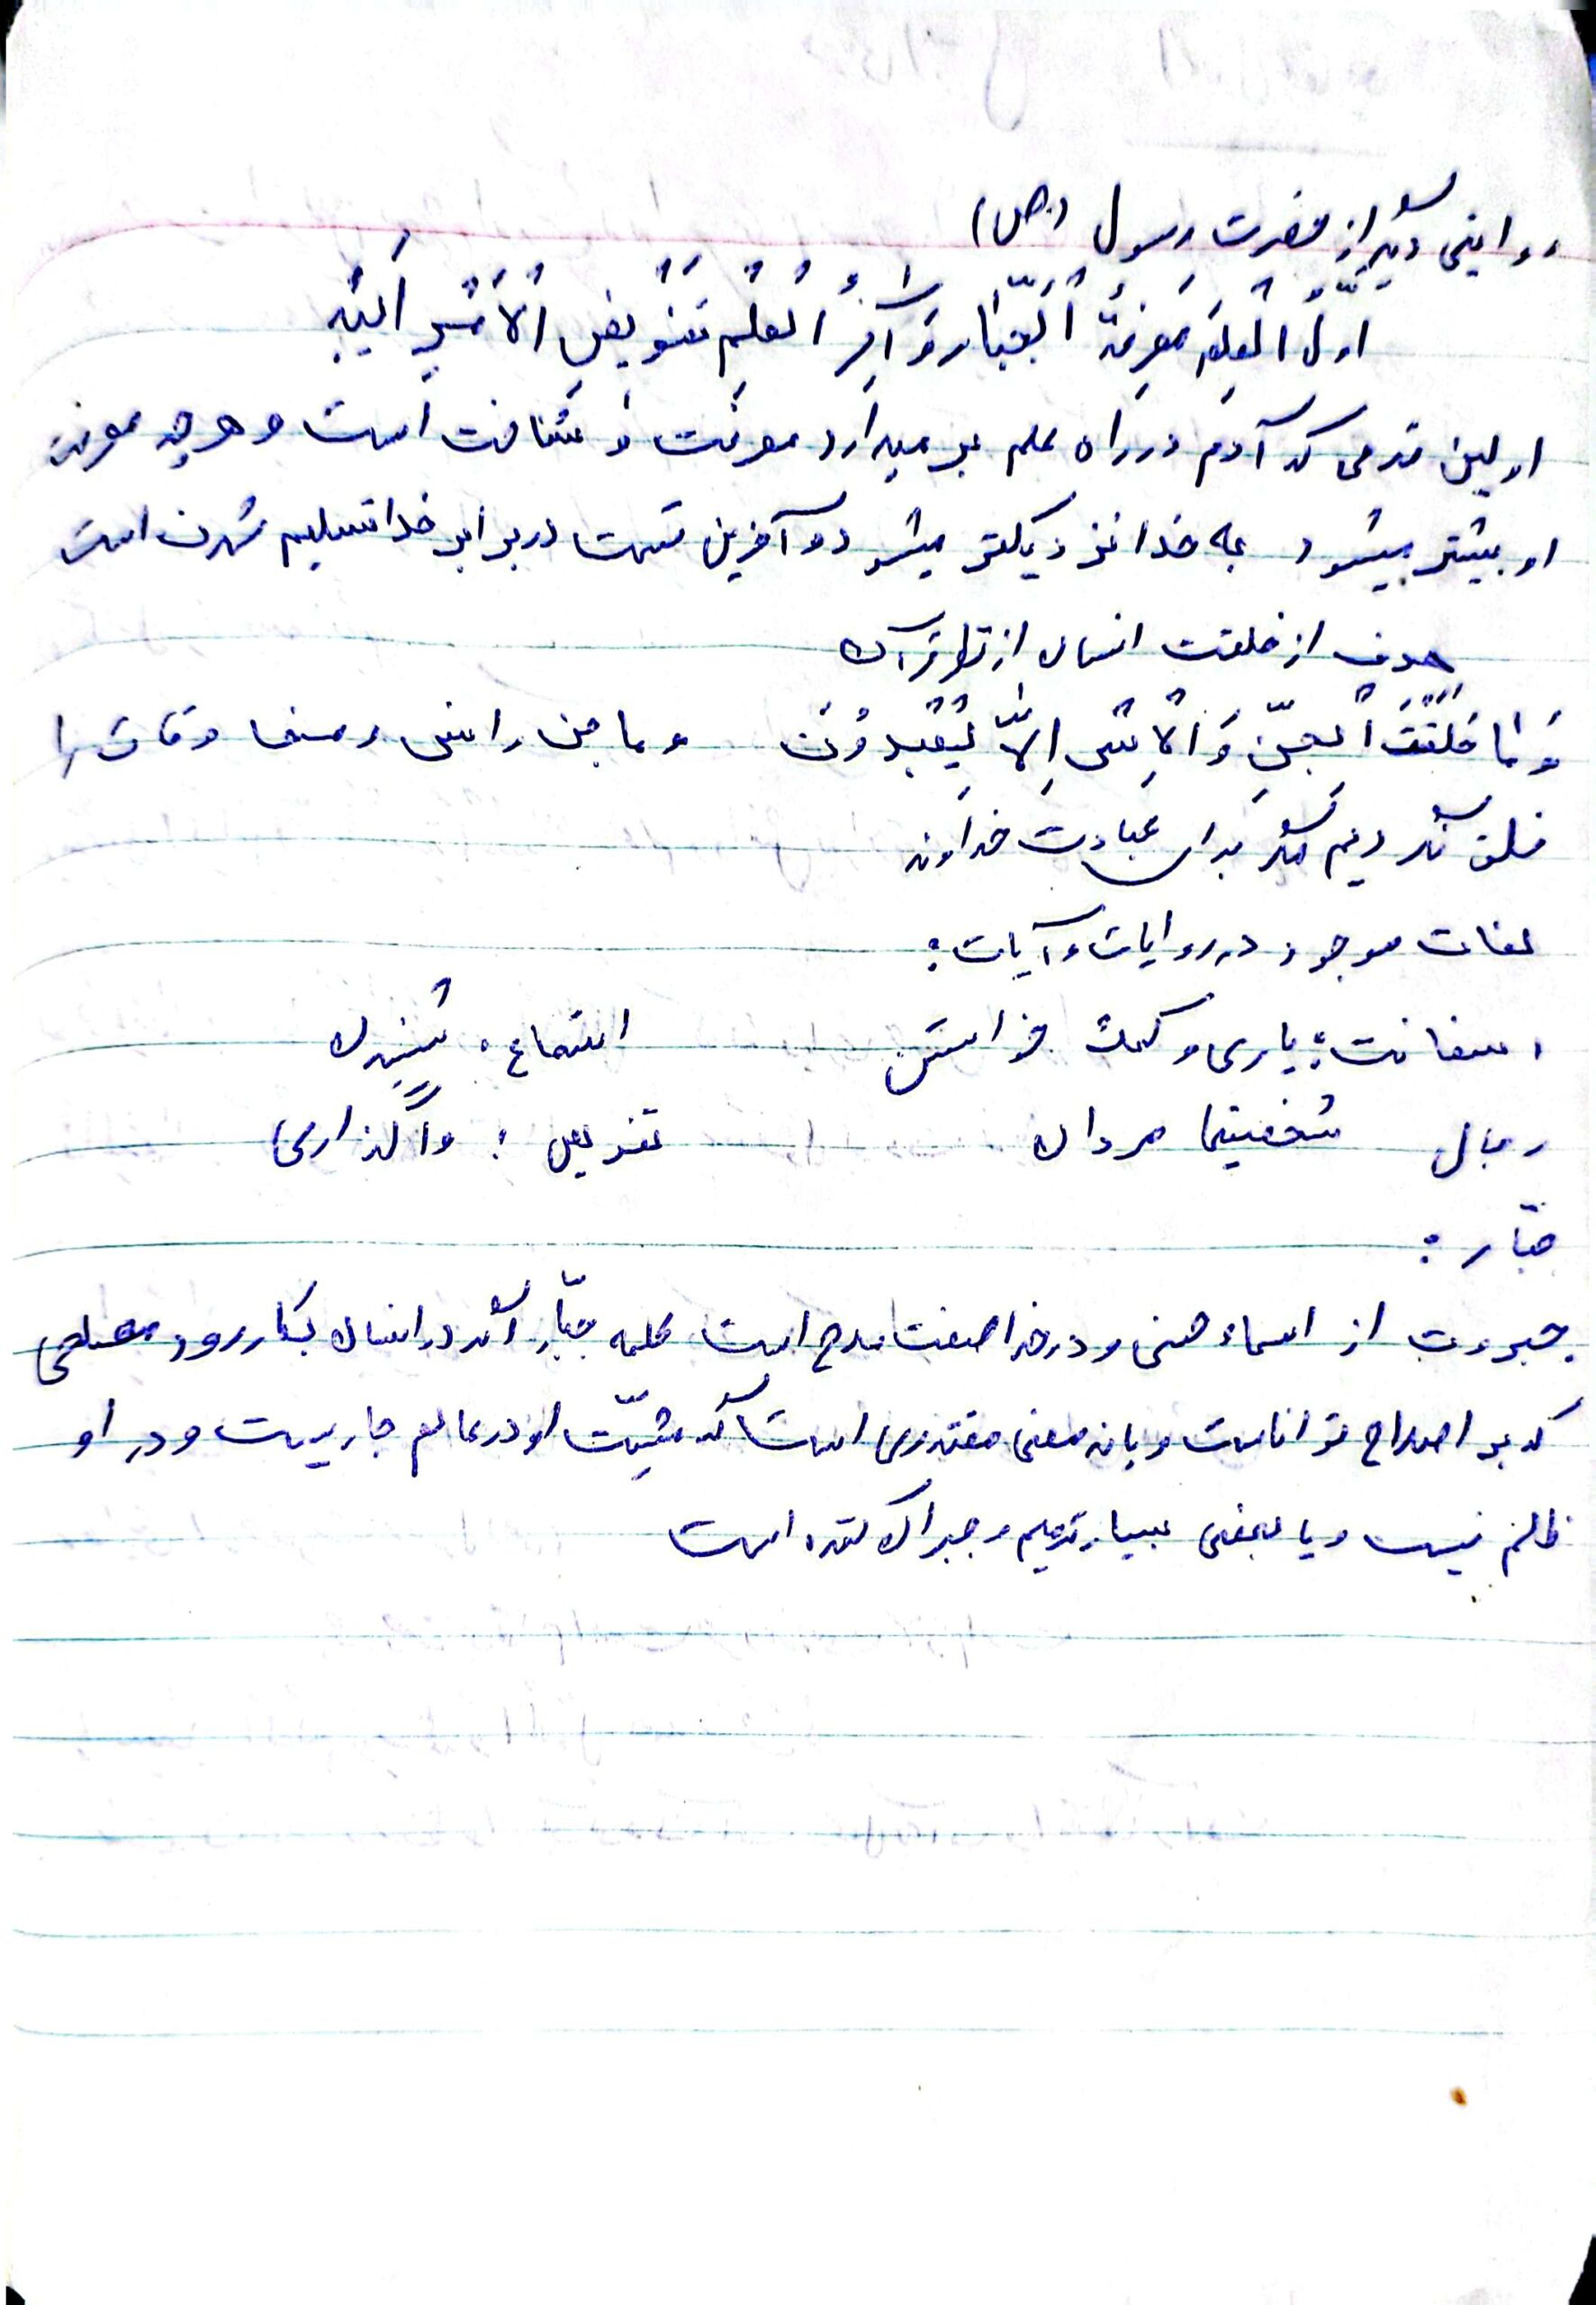 روایتی دیگر از حضرت رسول (ص)
اَوَّلُ الْعِلْمِ مَعْرِفَةُ الْجَبّٰار وَ آخِرُ الْعِلْمِ تَفْویضُ الْاَمْرِ اِلَیْهِ
اولین قدمی که آدم در راه علم بر میدارد معرفت و شناخت است و هرچه معرفت
او بیشتر میشود به خدا نزدیکتر میشود و آخرین قسمت در برابر خدا تسلیم شدن است
هدف از خلقت انسان از نظر قرآن
وَ مٰا خَلَقْتُ الْجِنَّ وَ الْاِنْسَ اِلاّٰ لِیَعْبُدُونَ و ما جن و انس و مخلوقات را
خلق نکردیم مگر برای عبادت خداوند
لغات موجود در روایات و آیات:
استعانت: یاری و کمک خواستن استماع: شنیدن
رجال شخصیتها مردان تفویض: واگذاری
جبّار:
جبروت از اسماء حسنی و در خدا صفت مدح است کلمه جبّار اگر در انسان بکار رود مصلحی
که بر اصلاح تواناست و یا به معنی مقتدری است که مشیّت او در عالم جاریست و در او
ظلم نیست و یا بمعنی بسیار ترمیم و جبران کننده است